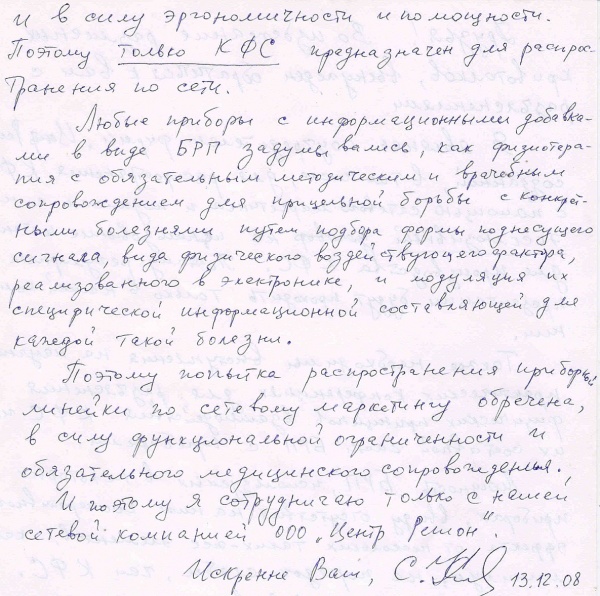 и в силу эргономичности и помощности.
Поэтому только КФС предназначен для распрос-
транения по сети.
Любые приборы с информационными добавка-
ми в виде БРП задумывались, как физиотера-
пия с обязательным методическим и врачебным
сопровождением для прицельной борьбы с конкрет-
ными болезнями путем подбора формы поднесущего
сигнала, вида физического воздействующего фактора,
реализованного в электронике, и модуляция их
специфической информационной составляющей для
каждой такой болезни.
Поэтому попытка распространения приборной
линейки по сетевому маркетингу обречена,
в силу функциональной ограниченности и
обязательного медицинского сопровожденья.
И поэтому я сотрудничаю только с нашей
сетевой компанией ООО „Центр Регион".
Искренне Ваш, С. 13.12.08